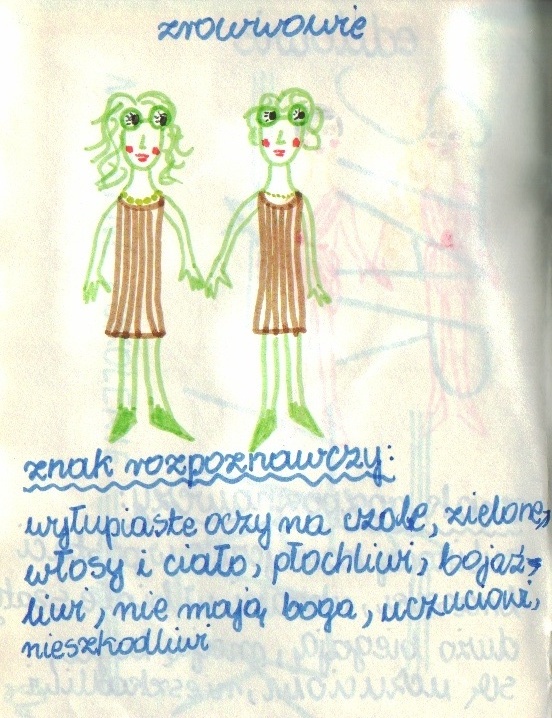 zrowwowie
znak rozpoznawczy:
wyłupiaste oczy na czole, zielone,
włosy i ciało, płochliwi, bojaź-
liwi, nie mają boga, uczuciowi,
nieszkodliwi